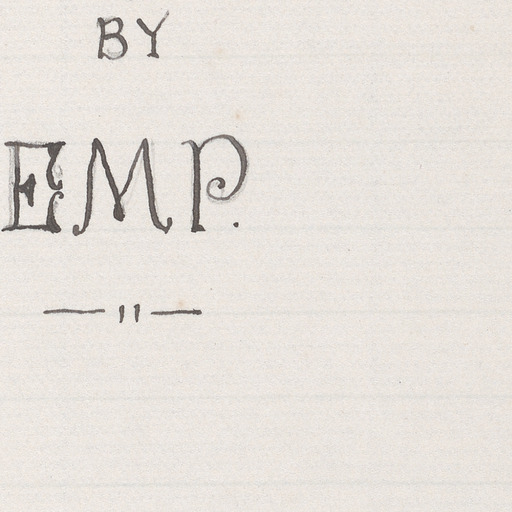 BY
EMP.
—"—